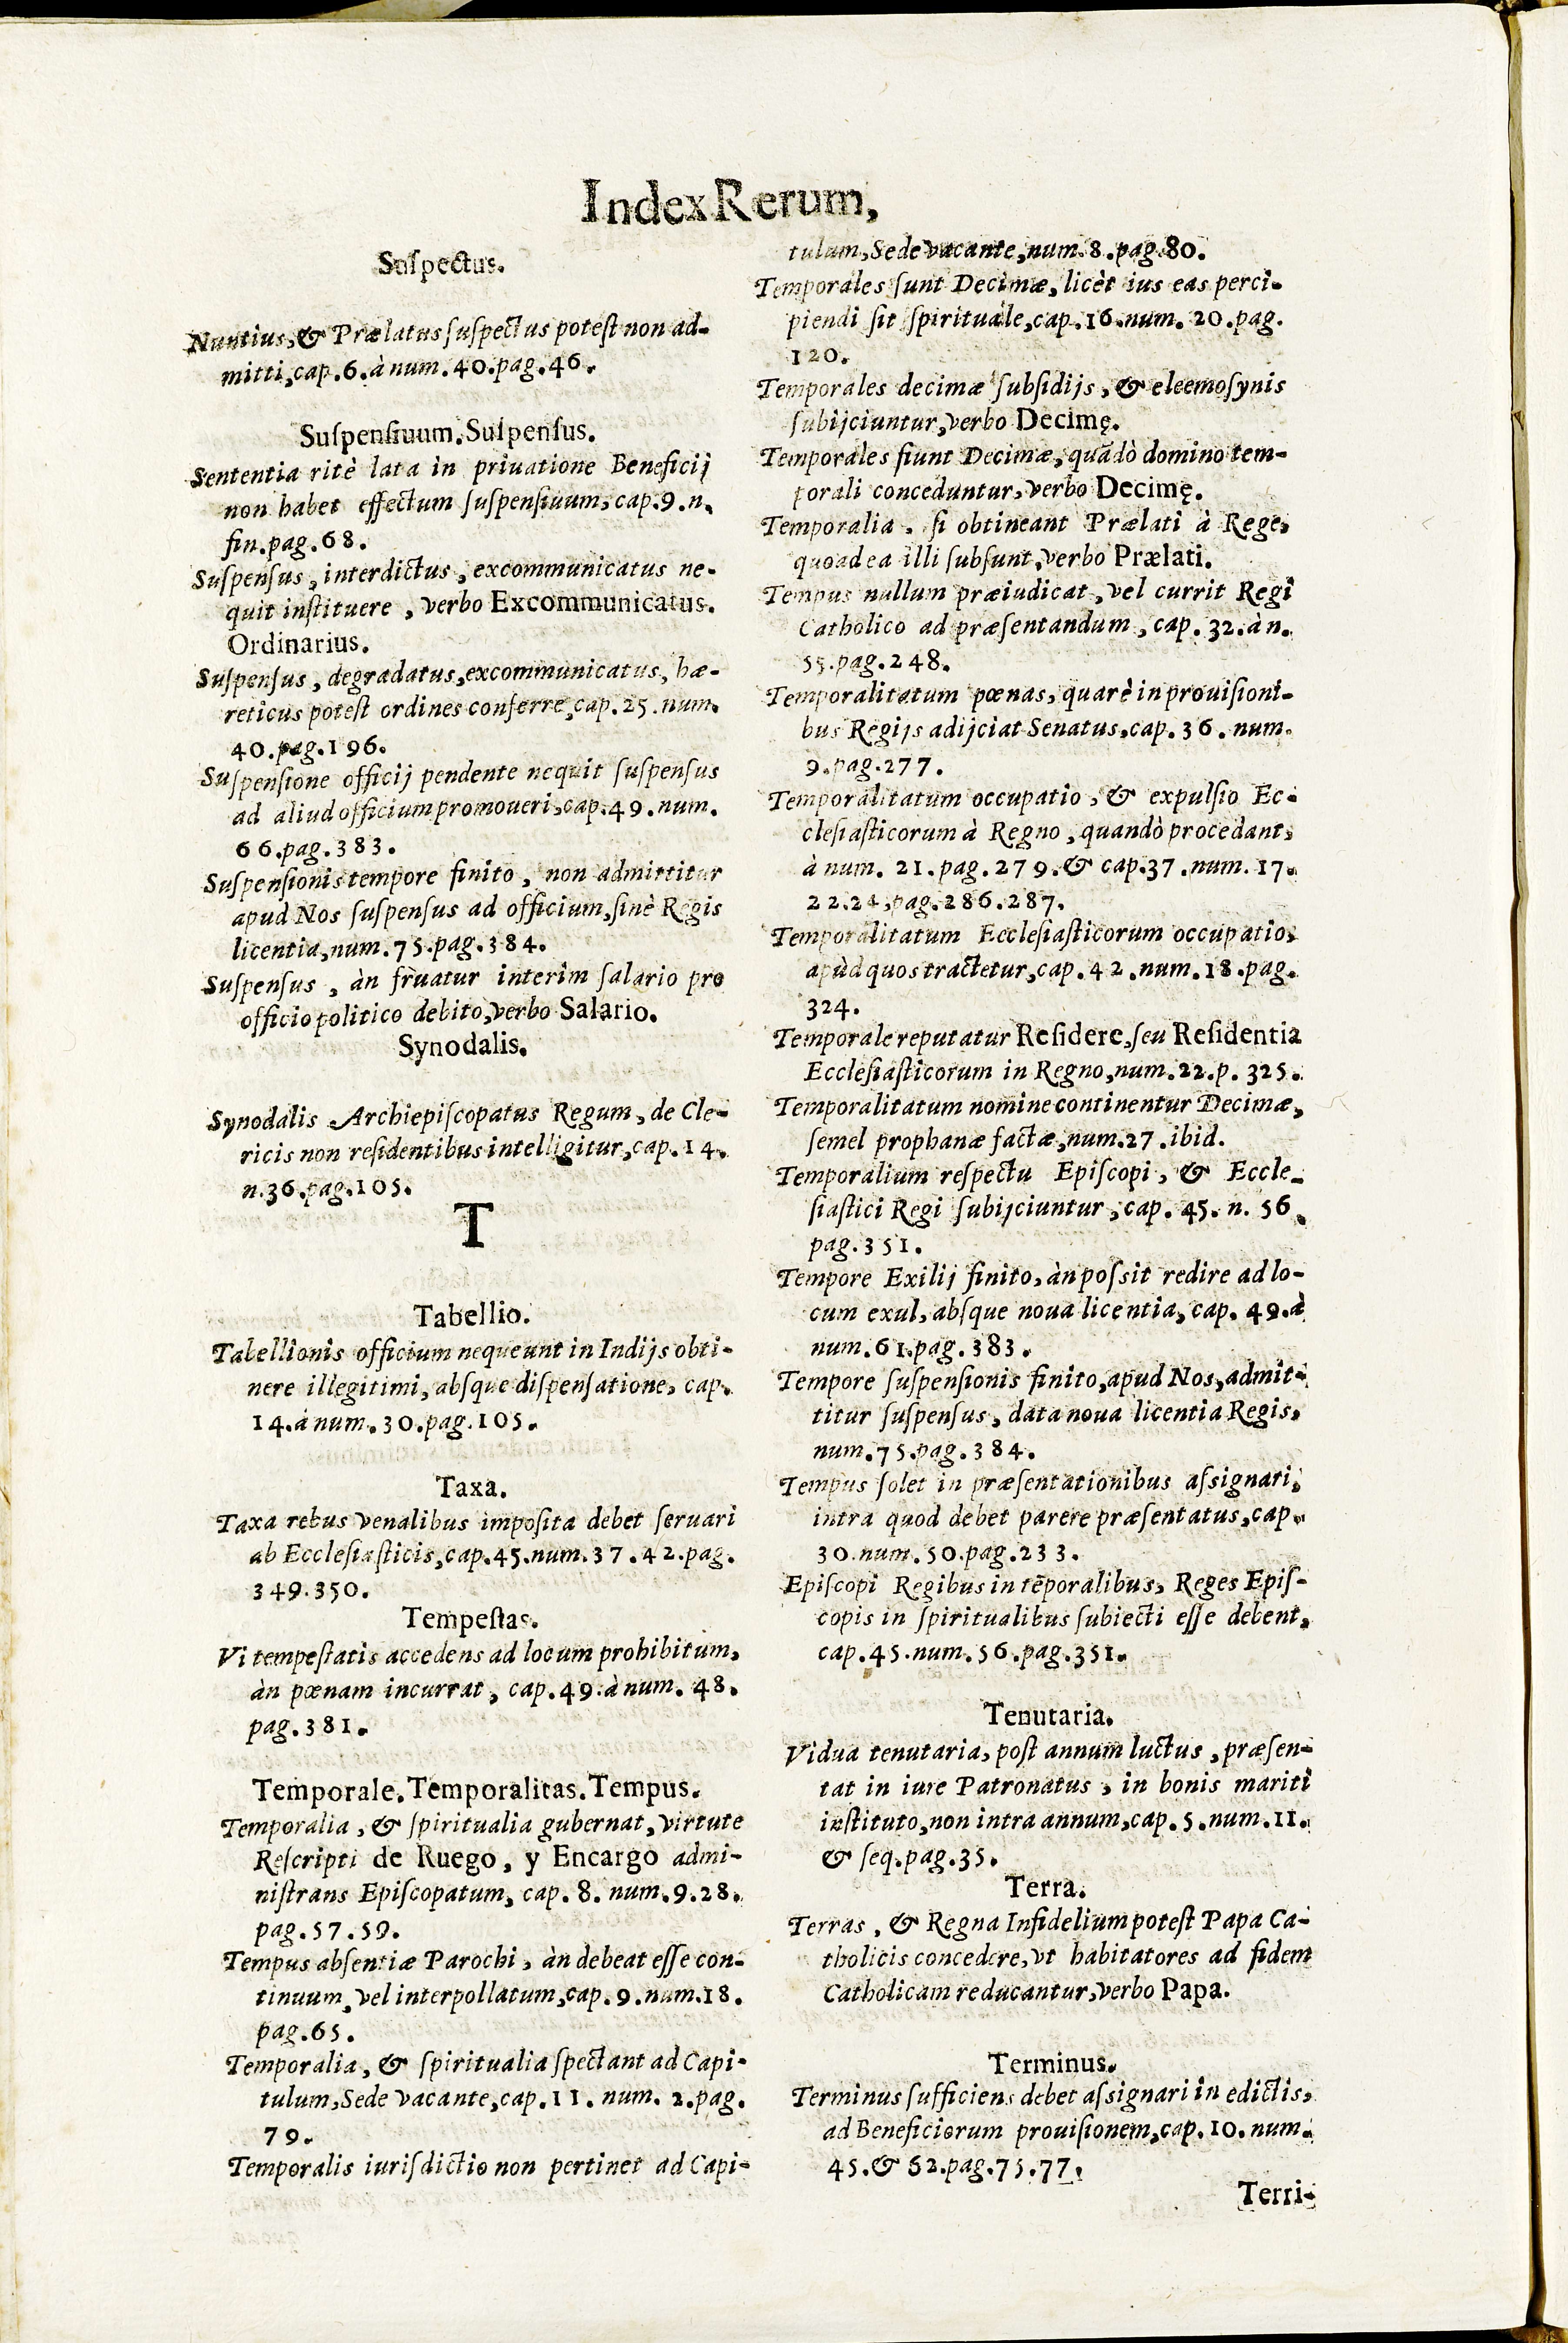 Index Rerum,
Suſpectus.
Nuntius, & Prælatus ſuſpectus poteſt non ad-
mitti, cap. 6. à num. 40. pag. 46.
Suſpenſiuum. Suſpenſus.
Sententia ritè lata in priuatione Beneficij
non habet effectum ſuſpenſiuum, cap. 9. n.
fin. pag. 68.
Suſpenſus, interdictus, excommunicatus ne-
quit inſtituere, verbo Excommunicatus.
Ordinarius.
Suſpenſus, degradatus, excommunicatus, hæ-
reticus poteſt ordines conferre, cap. 25. num.
40. pag. 196.
Suſpenſione officij pendente nequit ſuſpenſus
ad aliud officium promoueri, cap. 49. num.
66. pag. 383.
Suſpenſionis tempore finito, non admittitur
apud Nos ſuſpenſus ad officium, ſinè Regis
licentia, num. 75. pag. 384.
Suſpenſus, àn fruatur interim ſalario pro
officio politico debito, verbo Salario.
Synodalis.
Synodalis Archiepiſcopatus Regum, de Cle-
ricis non reſidentibus intelligitur, cap. 14.
n. 36. pag. 105.
T
Tabellio.
Tabellionis officium nequeunt in Indijs obti-
nere illegitimi, abſque diſpenſatione, cap.
14. à num. 30. pag. 105.
Taxa.
Taxa rebus venalibus impoſita debet ſeruari
ab Eccleſiaſticis, cap. 45. num. 37. 42. pag.
349. 350.
Tempeſtas.
Vi tempeſtatis accedens ad locum prohibitum,
àn pœnam incurrat, cap. 49. à num. 48.
pag. 381.
Temporale. Temporalitas. Tempus.
Temporalia, & ſpiritualia gubernat, virtute
Reſcripti de Ruego, y Encargo admi-
niſtrans Epiſcopatum, cap. 8. num. 9. 28.
pag. 57. 59.
Tempus abſentiæ Parochi, àn debeat eſſe con-
tinuum, vel interpollatum, cap. 9. num. 18.
pag. 65.
Temporalia, & ſpiritualia ſpectant ad Capi-
tulum, Sede vacante, cap. 11. num. 2. pag.
79.
Temporalis iuriſdictio non pertinet ad Capi-
tulum, Sede vacante, num. 8. pag. 80.
Temporales ſunt Decimæ, licèt ius eas perci-
piendi ſit ſpirituàle, cap. 16. num. 20. pag.
120.
Temporales decimæ ſubſidijs, & eleemoſynis
ſubijciuntur, verbo Decimę.
Temporales fiunt Decimæ, quādò domino tem-
porali conceduntur, verbo Decimę.
Temporalia, ſi obtineant Prælati à Rege,
quoad ea illi ſubſunt, verbo Prælati.
Tempus nullum præiudicat, vel currit Regi
Catholico ad præſentandum, cap. 32. à n.
55. pag. 248.
Temporalitatum pœnas, quarè in prouiſioni-
bus Regijs adijciat Senatus, cap. 36. num.
9. pag. 277.
Temporalitatum occupatio, & expulſio Ec-
cleſiaſticorum à Regno, quandò procedant,
à num. 21. pag. 279. & cap. 37. num. 17.
22. 24, pag. 286. 287.
Temporalitatum Eccleſiaſticorum occupatio,
apùd quos tractetur, cap. 42. num. 18. pag.
324.
Temporale reputatur Reſidere, ſeu Reſidentia
Eccleſiaſticorum in Regno, num. 22. p. 325.
Temporalitatum nomine continentur Decimæ,
ſemel prophanæ factæ, num. 27. ibid.
Temporalium reſpectu Epiſcopi, & Eccle-
ſiaſtici Regi ſubijciuntur, cap. 45. n. 56.
pag. 351.
Tempore Exilij finito, àn poſsit redire ad lo-
cum exul, abſque noua licentia, cap. 49. à
num. 61. pag. 383.
Tempore ſuſpenſionis finito, apud Nos, admit-
titur ſuſpenſus, data noua licentia Regis,
num. 75. pag. 384.
Tempus ſolet in præſentationibus aſsignari,
intra quod debet parere præſentatus, cap.
30. num. 50. pag. 233.
Epiſcopi Regibus in tēporalibus, Reges Epiſ-
copis in ſpiritualibus ſubiecti eſſe debent,
cap. 45. num. 56. pag. 351.
Tenutaria.
Vidua tenutaria, poſt annum luctus, præſen-
tat in iure Patronatus, in bonis mariti
inſtituto, non intra annum, cap. 5. num. 11.
& ſeq. pag. 35.
Terra.
Terras, & Regna Infidelium poteſt Papa Ca-
tholicis concedere, vt habitatores ad fidem
Catholicam reducantur, verbo Papa.
Terminus.
Terminus ſufficiens debet aſsignari in edictis,
ad Beneficiorum prouiſionem, cap. 10. num.
45. & 52. pag. 75. 77.
Terri-